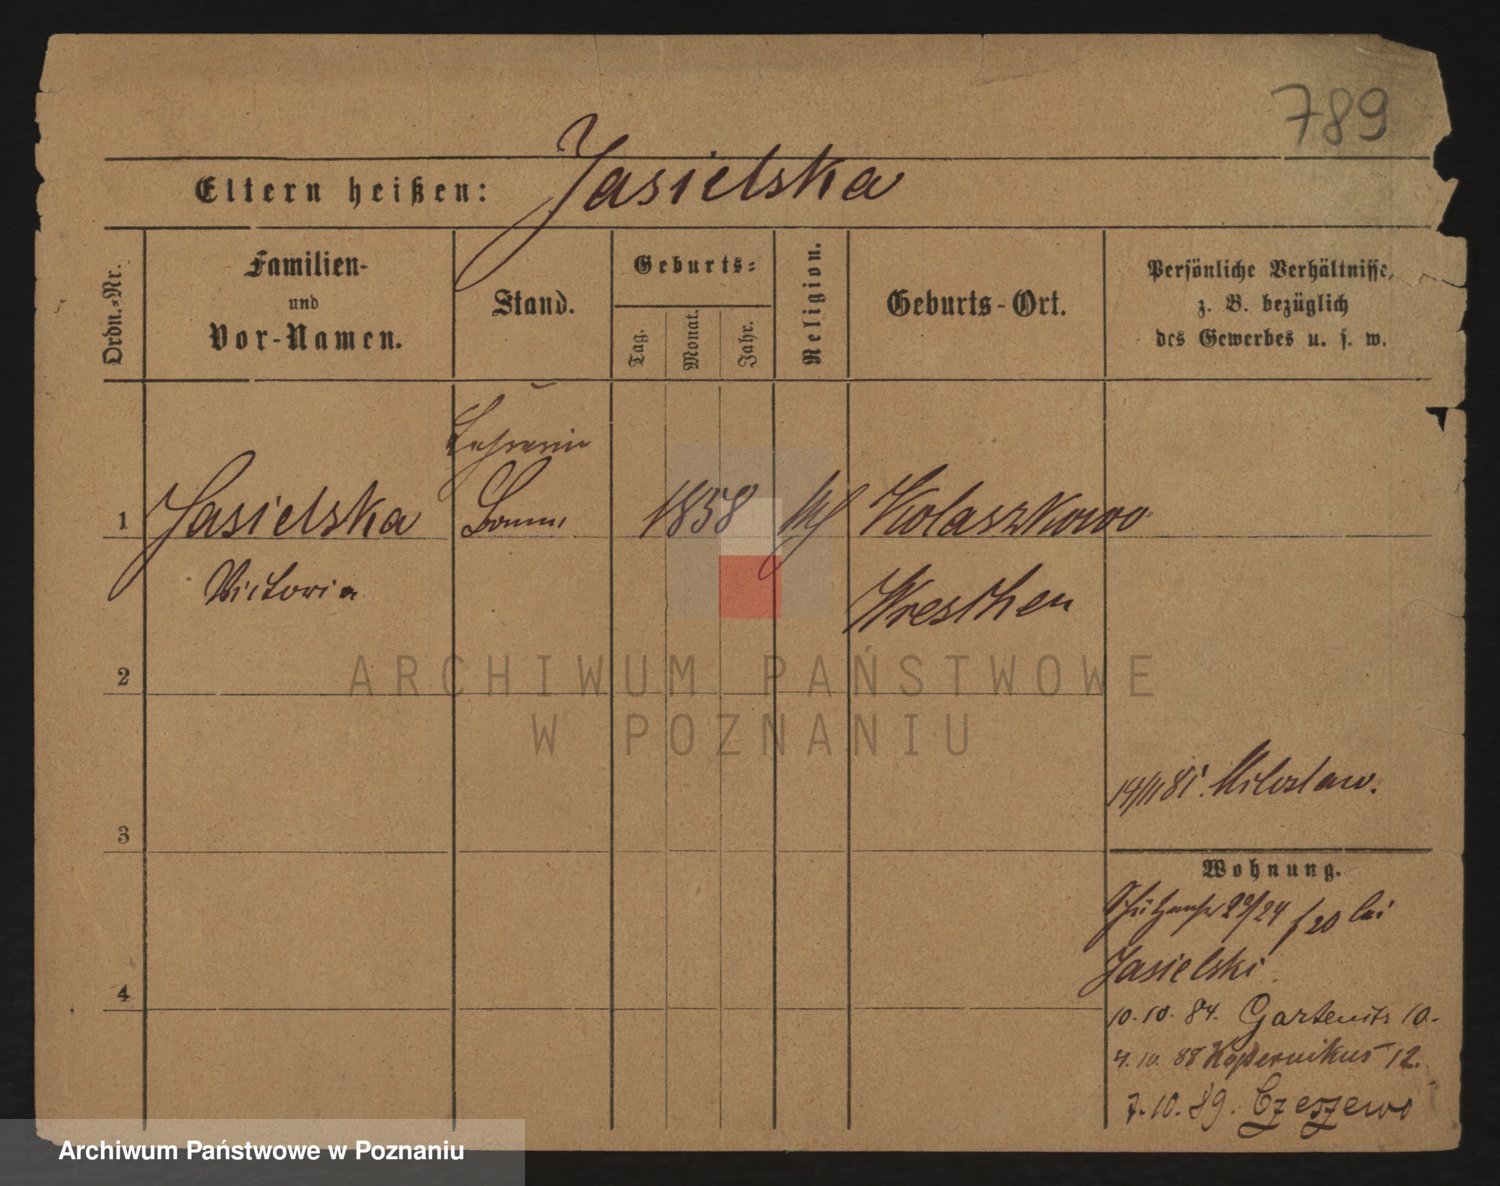 789
Eltern heißen: Jasielska
Ordn.-Nr.
Familien-
und
Vor-Namen.
Stand.
Geburts-
Tag.
Monat.
Jahr.
Religion.
Geburts-Ort.
Persönliche Verhältnisse,
z. B. bezüglich
des Gewerbes u. s. w.
Lehrerin
1 Jasielska 1858 kf Kolaszkowo
Victoria
Wreschen
2
ARCHIWUM PAŃSTWOWE
W POZNANIU
14/11 81. Miloslaw.
3
Wohnung.
Schützenstr 23/24 f 20 bei
Jasielski
4
10. 10. 84. Gartenstr 10.
4. 10. 88 Kopernikus 12.
7. 10. 89. Czeszewo
Archiwum Państwowe w Poznaniu